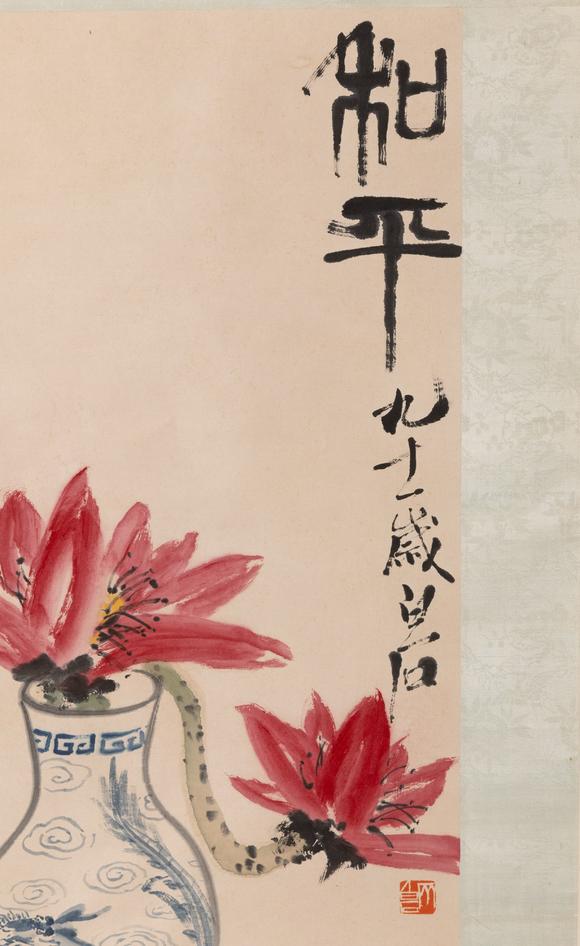 和平
九十一歲白石